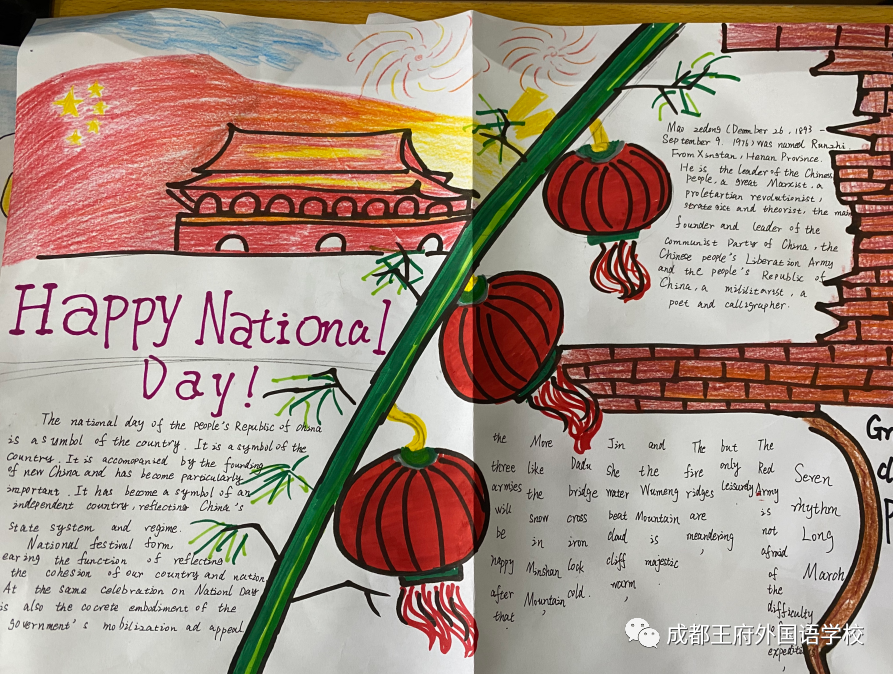 Happy National
Day!
The national day of the people's Republic of china
is a symbol of the country. It is a symbol of the
country. It is accomopanied by the founding
of new China and has become particularly
important. It has become a symbol of an
independent country, reflecting China's
state system and regime.
National festival form
earing the function of reflecting
the cohesion of our country and nation
At the same celebration on Nationl Day
is also the cocrete embodiment of the
government's mobilization ad appeal
Mao zedong (Deember 26, 1893 -
September 9. 1976) was named Runzhi.
From Xiangtan, Hunan Province.
He is the leader of the Chinese
people, a great Marxist, a
proletartian revolutionist,
strategist and theorist, the main
founder and leader of the
communist Party of China, the
Chinese people's Liberation Army
and the people's Republic of
China, a mililitarist, a
poet and calligrapher.
Seren rhythm Long March
The Red Army is not afraid of the difficulty of expedition,
but only leisurely
The fire ridges are meandering,
and the Wumeng Mountain is majestic
Jin she water beat cloud cliff warm.
Dadu bridge cross iron lock cold.
More like the snow in Minshan Mountain
the three armies will be happy after that.
成都王府外国语学校